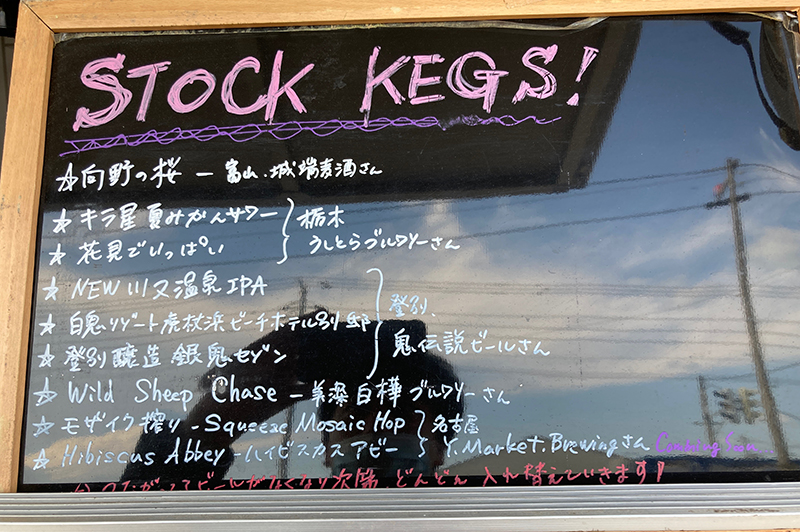 STOCK KEGS!
☆向野の桜 ― 富山・城端麦酒さん
☆キラ星夏みかんサワー
☆花見でいっぱい
栃木
うしとらブルワリーさん
☆NEW川又温泉IPA
☆白鬼リゾート虎杖浜ビーチホテル別邸
☆登別醸造 銀鬼セゾン
登別、
鬼伝説ビールさん
☆Wild Sheep Chase ― 美深白樺ブルワリーさん
☆モザイク搾り - Squeeze Mosaic Hop
☆Hibiscus Abbey - ハイビスカスアビー
名古屋
Y.Market.Brewingさん Comming Soon
つながってるビールがなくなり次第 どんどん 入れ替えていきます!